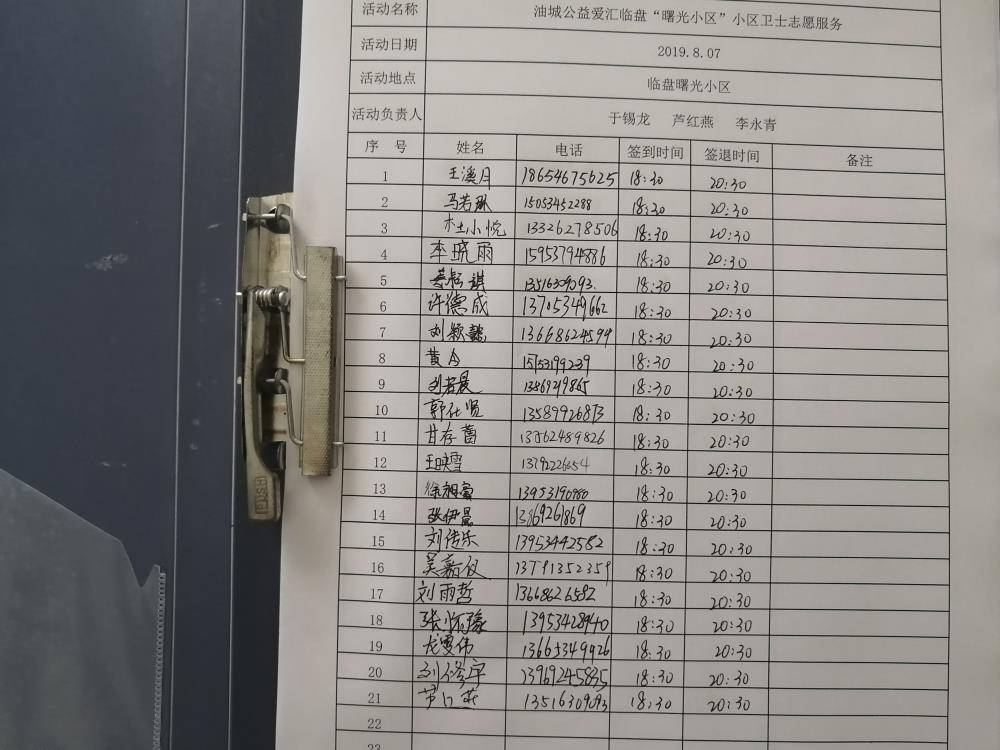 活动名称 油城公益爱汇临盘“曙光小区”小区卫士志愿服务
活动日期 2019.8.07
活动地点 临盘曙光小区
活动负责人 于锡龙 芦红燕 李永青
序 号 姓名 电话 签到时间 签退时间 备注
1 王溪月 18654675625 18:30 20:30
2 马若琳 15053452288 18:30 20:30
3 杜小悦 13326278506 18:30 20:30
4 李晓雨 15953794886 18:30 20:30
5 13516309093. 18:30 20:30
6 许德成 13705349662 18:30 20:30
7 刘颖懿 13668624594 18:30 20:30
8 黄今 15153199239 18:30 20:30
9 刘若晨 13869249865 18:30 20:30
10 郭仕贤 18:30 20:30
11 甘存蕾 13562489826 18:30 20:30
12 王映雪 18:30 20:30
13 13953190980 18:30 20:30
14 张伊晨 1386926869 18:30 20:30
15 刘传乐 13953442582 18:30 20:30
16 吴嘉仪 13791352359 18:30 20:30
17 刘雨哲 13668626582 18:30 20:30
18 张怀臻 13953428940 18:30 20:30
19 龙雯伟 13665349426 18:30 20:30
20 13969245835 18:30 20:30
21 13516309093 18:30 20:30
22
23
PUSH